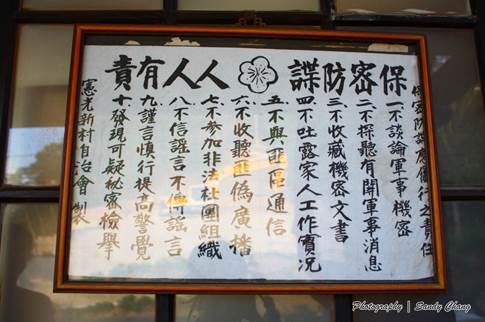 保密防諜人人有責
保密防諜應償行之責任
一不談論軍事機密
二不探聽有關軍事消息
三不收藏機密文書
四不吐露家人工作實況
五不與匪區通信
六不收聽匪偽廣播
七不參加非法社團組織
八不信謠言不傳謠言
九謹言慎行提高警覺
十發現可疑秘密檢舉
憲光新村自治會製
Photography | Sandy Chang